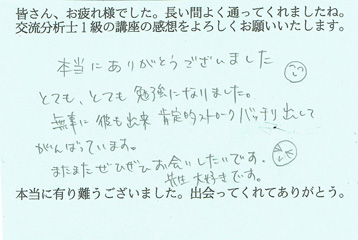 皆さん、お疲れ様でした。長い間よく通ってくれましたね。
交流分析士１級の講座の感想をよろしくお願いいたします。
本当にありがとうございました
とても、とても勉強になりました。
無事に彼も出来 肯定的ストローク バッチリ出して
がんばっています。
またまたぜひぜひお会いしたいです。
先生 大好きです。
本当に有り難うございました。出会ってくれてありがとう。